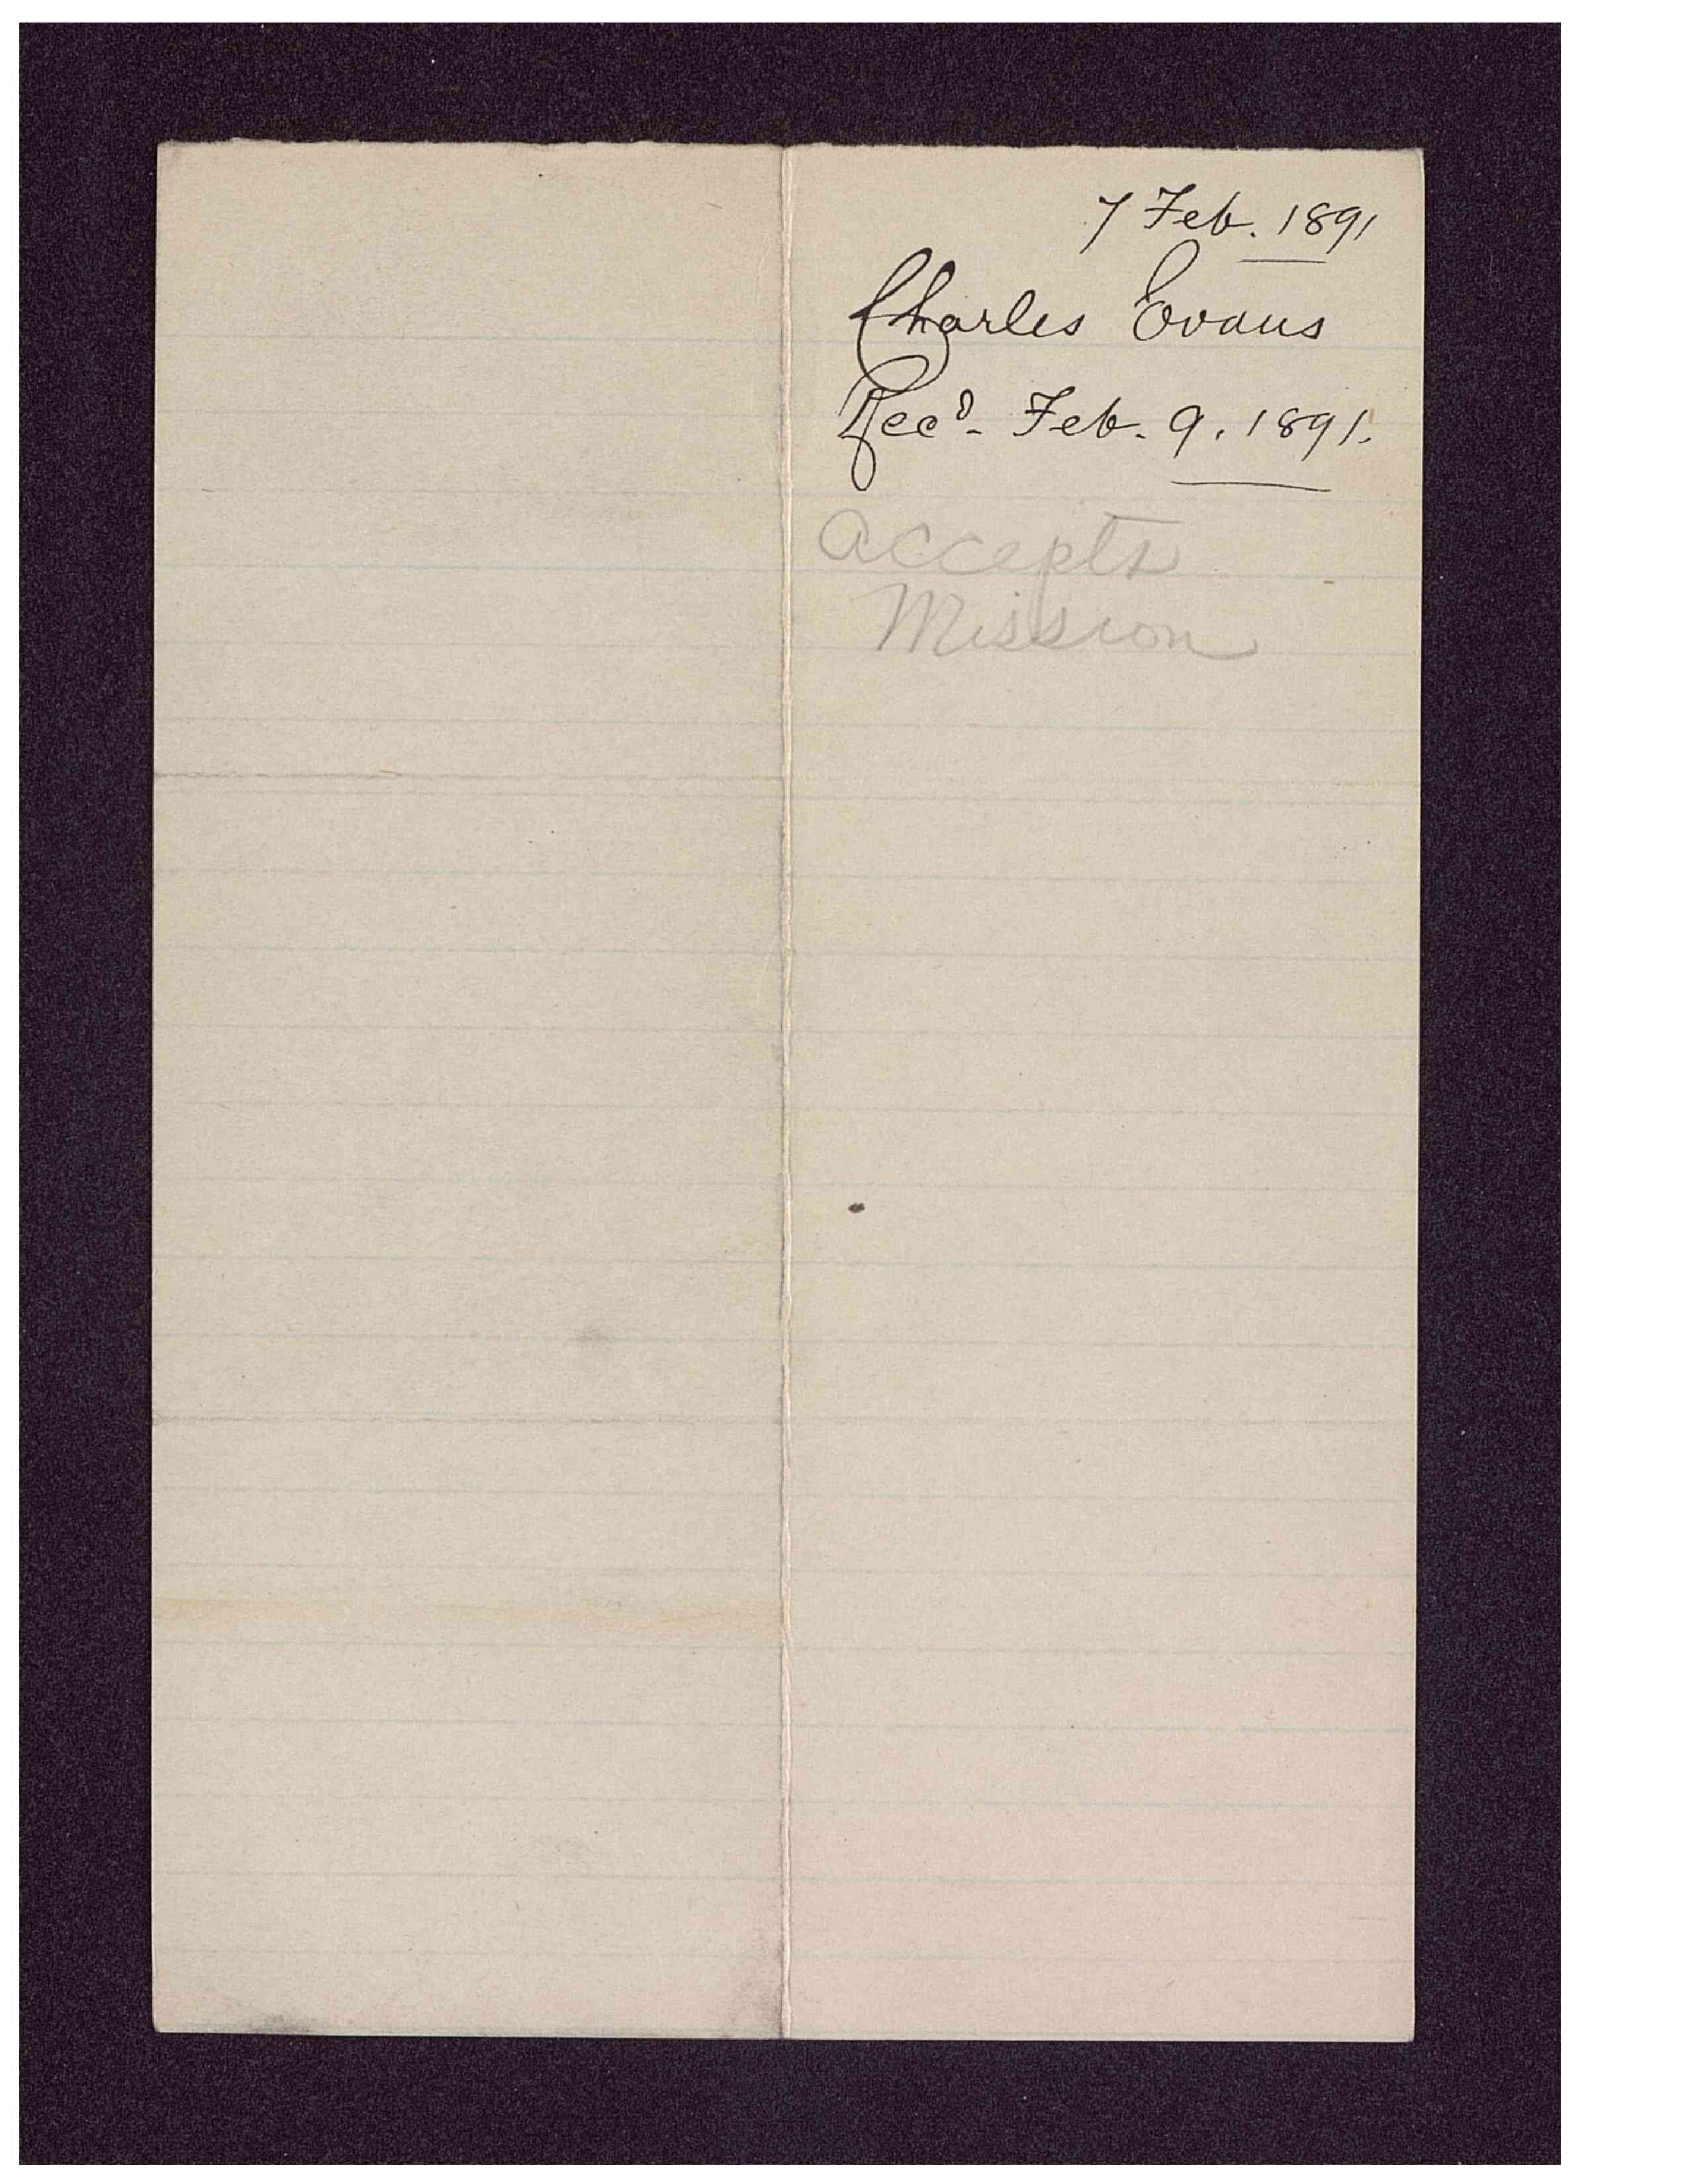 7 Feb. 1891
Charles Evans
Recd. Feb. 9. 1891.
accepts
Mission